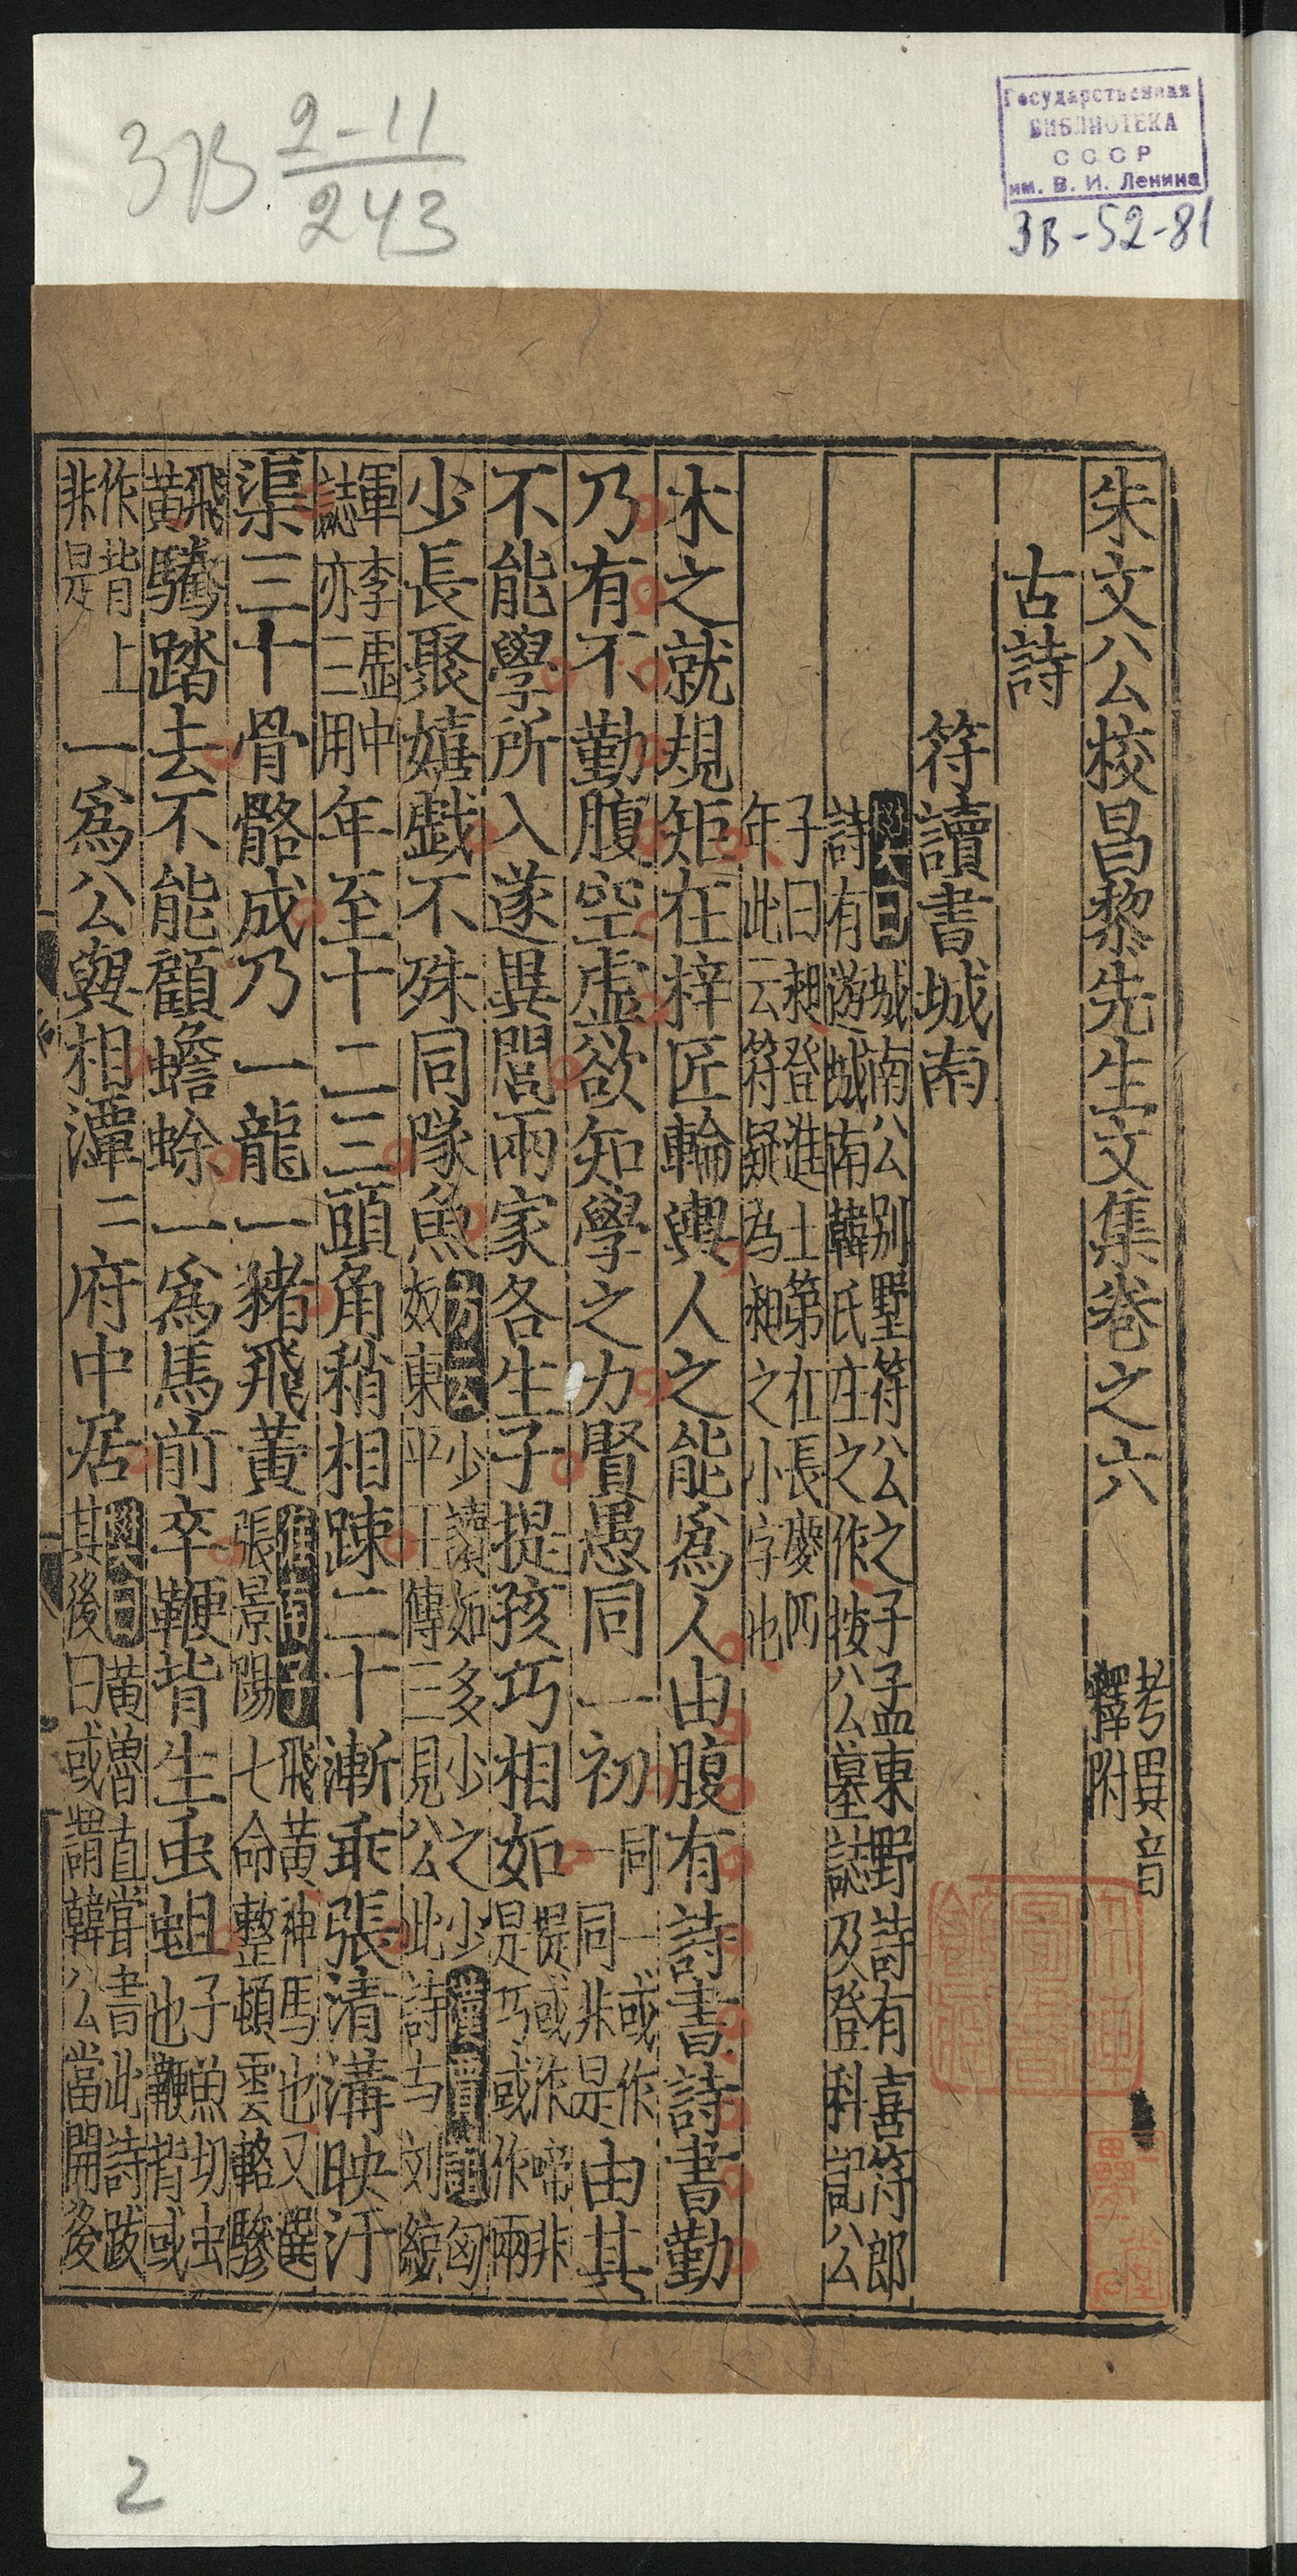 3В 2-11/243
Государственная
БИБЛИОТЕКА
СССР
им. В. И. Ленина
3В-52-81
朱文公校昌黎先生文集卷之六 考異音釋附
古詩
符讀書城南
城南公别墅符公之子孟東野詩有喜符郎
詩有遊城南韓氏庄之作按公墓誌及登科記公
子曰昶登進士第在長慶四
年此云符疑為昶之小字也
木之就規矩在梓匠輪輿人之能爲人由腹有詩書詩書勤
乃有不勤腹空虛欲知學之力賢愚同一初 同一或作一同非是 由其
不能學所入遂異閭兩家各生子提孩巧相如 提或作啼非是巧或作兩
少長聚嬉戲不殊同隊魚 方云少讀如多少之少
奴東平王傳三見公此詩与刘綜
軍李虛中
誌亦三用 年至十二三頭角稍相踈二十漸乖張清溝映汙
渠三十骨骼成乃一龍一豬飛黃 飛黃神馬也又選
張景陽七命整頓雲輅驂
飛黃 騰踏去不能顧蟾蜍一爲馬前卒鞭背生虫蛆 子魚切虫
也鞭背或
作背上
非是 一爲公與相潭二府中居 黄魯直嘗書此詩跋
其後曰或謂韓公當開後
2